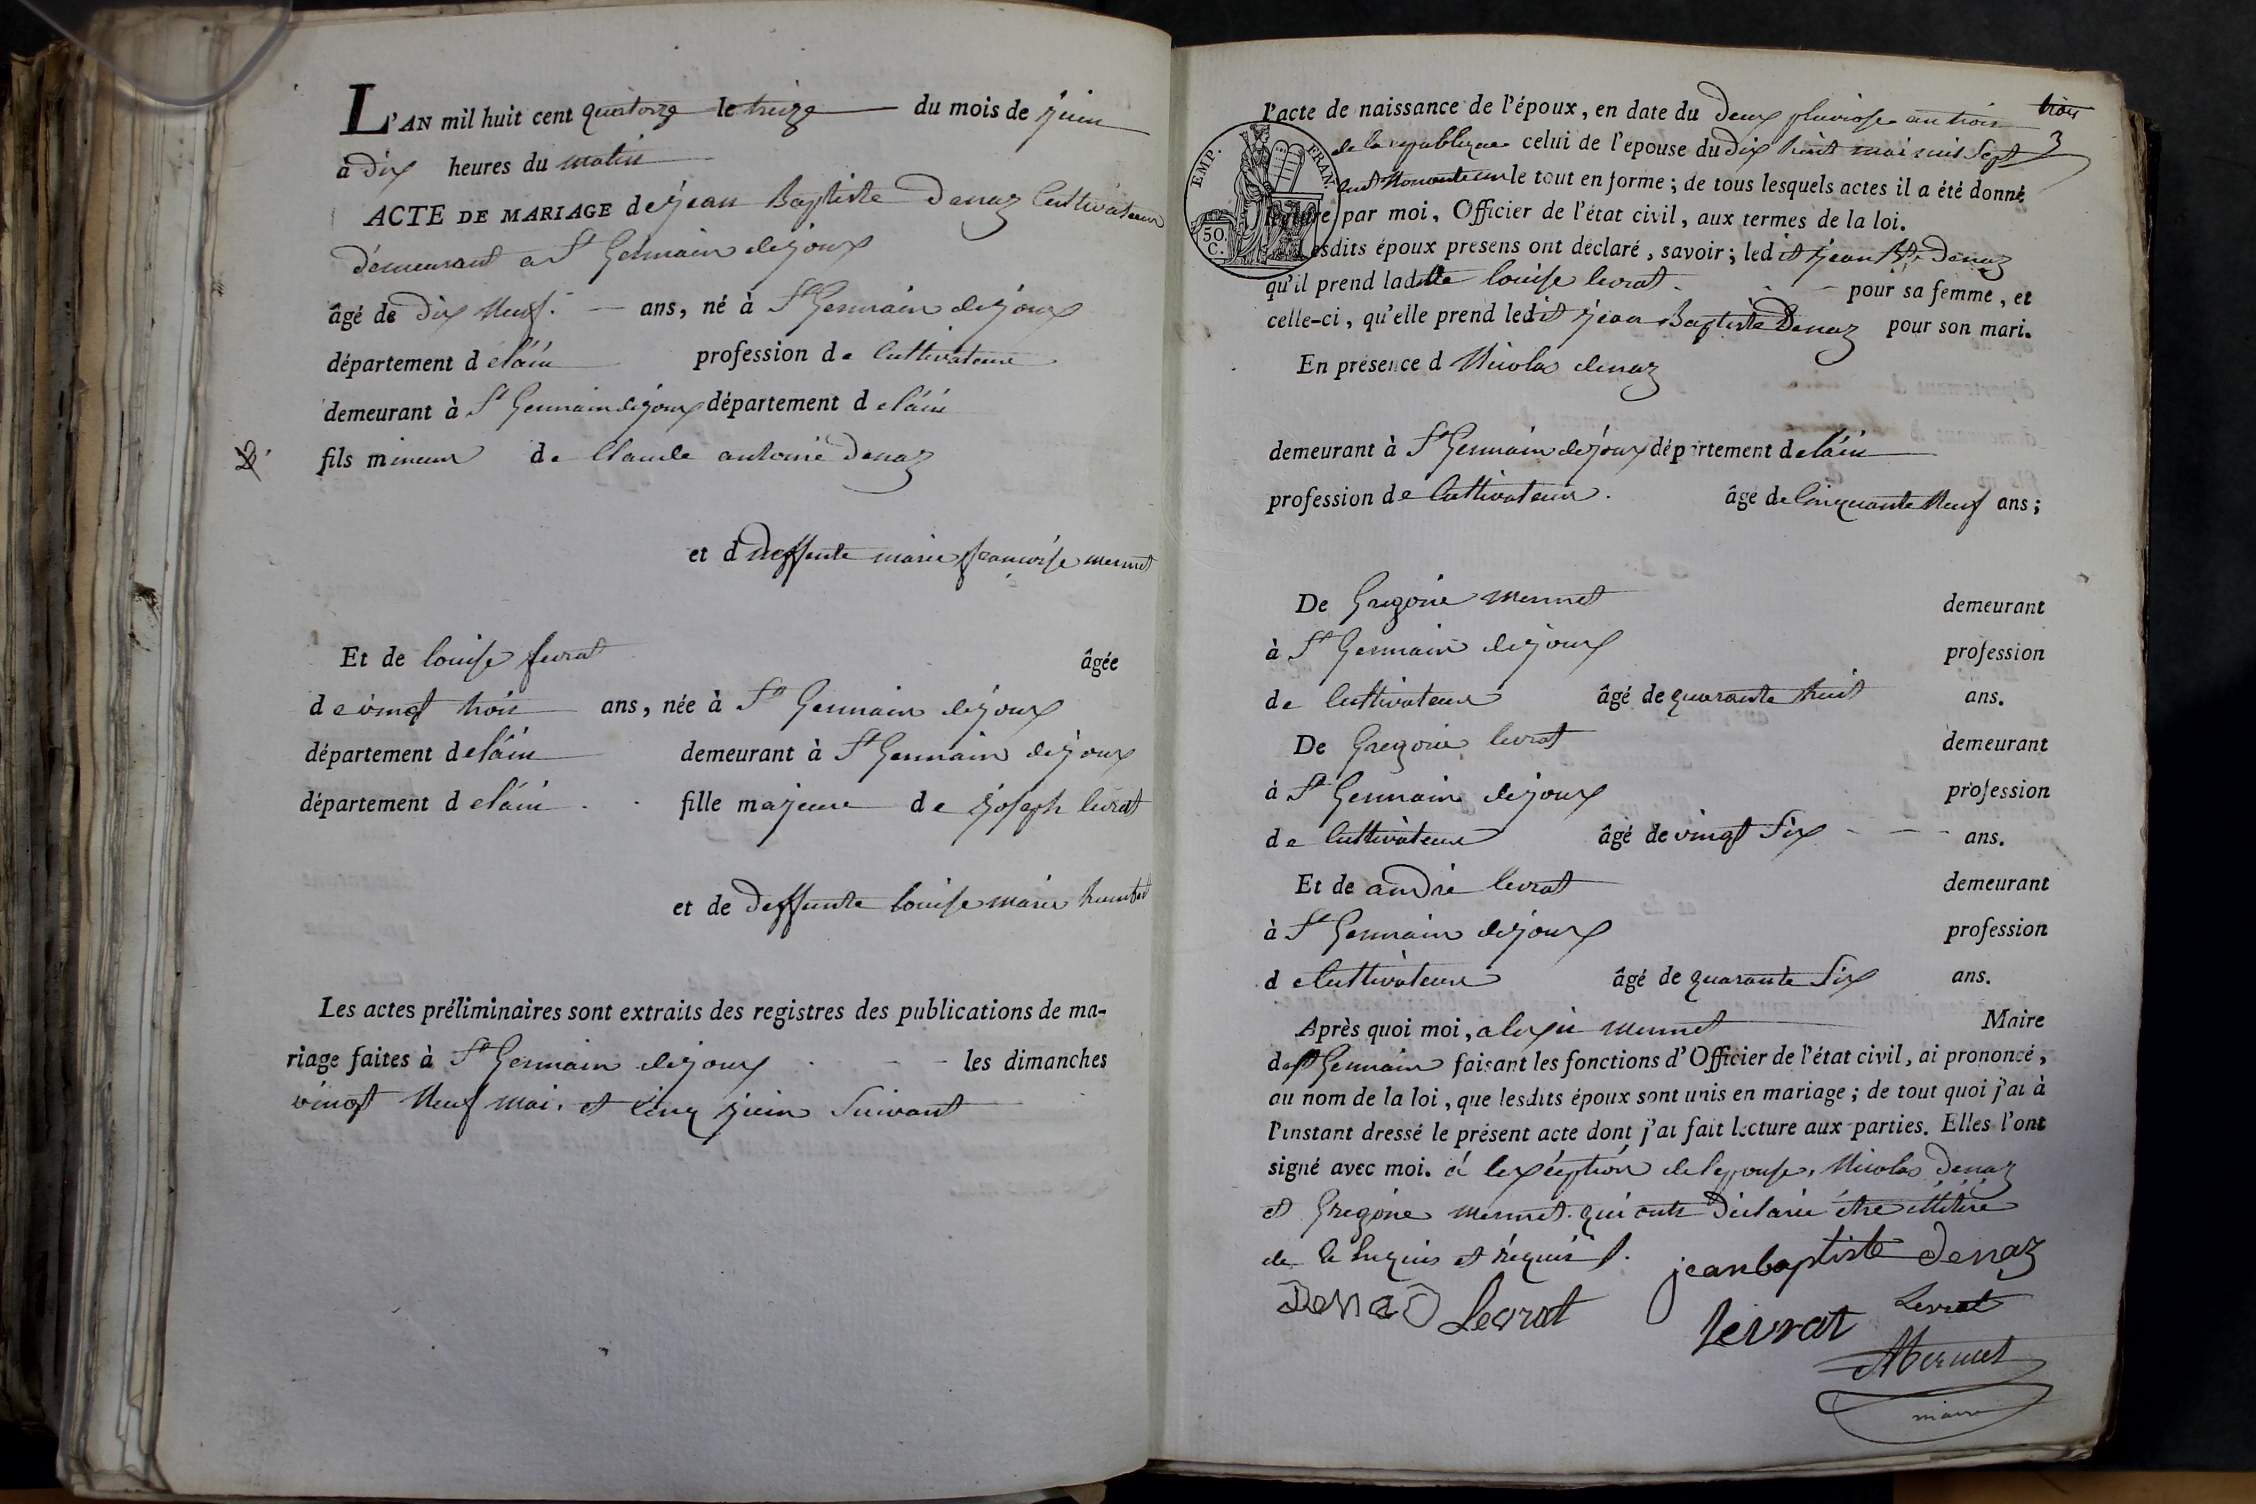 L'AN mil huit cent quatorze le treize du mois de juin
à dix heures du matin
ACTE DE MARIAGE de jean Baptiste Denaz Cultivateur
demeurant a St Germain dejoux
âgé de dix neuf ans, né à St Germain dejoux
département de l'ain profession de Cultivateur
demeurant à St Germain dejoux département de l'ain
fils mineur de Claude antoine Denaz
et d deffunte marie françoise mermet
Et de louise levrat âgée
de vingt trois ans, née à St Germain dejoux
département de l'ain demeurant à St Germain dejoux
département de l'ain fille majeure de joseph levrat
et de deffunte louise marie humbert
Les actes préliminaires sont extraits des registres des publications de ma-
riage faites à St Germain dejoux les dimanches
vingt neuf mai et cinq juin Suivant
trois
3
l'acte de naissance de l'époux, en date du deux pluviose an trois
de la republique celui de l'epouse du dix huit mai mil Sept
cent nonante un le tout en forme ; de tous lesquels actes il a été donné
lecture par moi, Officier de l'état civil, aux termes de la loi.
Lesdits époux présens ont déclaré, savoir ; ledit jean Bte Denaz
qu'il prend ladite louise levrat pour sa femme, et
celle-ci, qu'elle prend ledit jean Baptiste Denaz pour son mari.
EMP. FRAN.
50 C.
En présence d Nicolas denaz
demeurant à St Germain dejoux département de l'ain
profession de Cultivateur. âgé de Cinquante neuf ans ;
De Gregoire mermet demeurant
à St Germain dejoux profession
de Cultivateur âgé de quarante huit ans.
De Gregoire levrat demeurant
à St Germain dejoux profession
de Cultivateur âgé de vingt Six ans.
Et de andré levrat demeurant
à St Germain dejoux profession
de Cultivateur âgé de quarante Six ans.
Après quoi moi, alexie mermet Maire
de St Germain faisant les fonctions d'Officier de l'état civil, ai prononcé,
au nom de la loi, que lesdits époux sont unis en mariage ; de tout quoi j'ai à
l'instant dressé le présent acte dont j'ai fait lecture aux parties. Elles l'ont
signé avec moi. à l'exception de l'epouse, Nicolas Denaz
et Gregoire mermet. qui ont déclaré être illitéré
de ce enquis et requis
jean baptiste denaz
Denaz Levrat
levrat Levrat
Mermet
maire